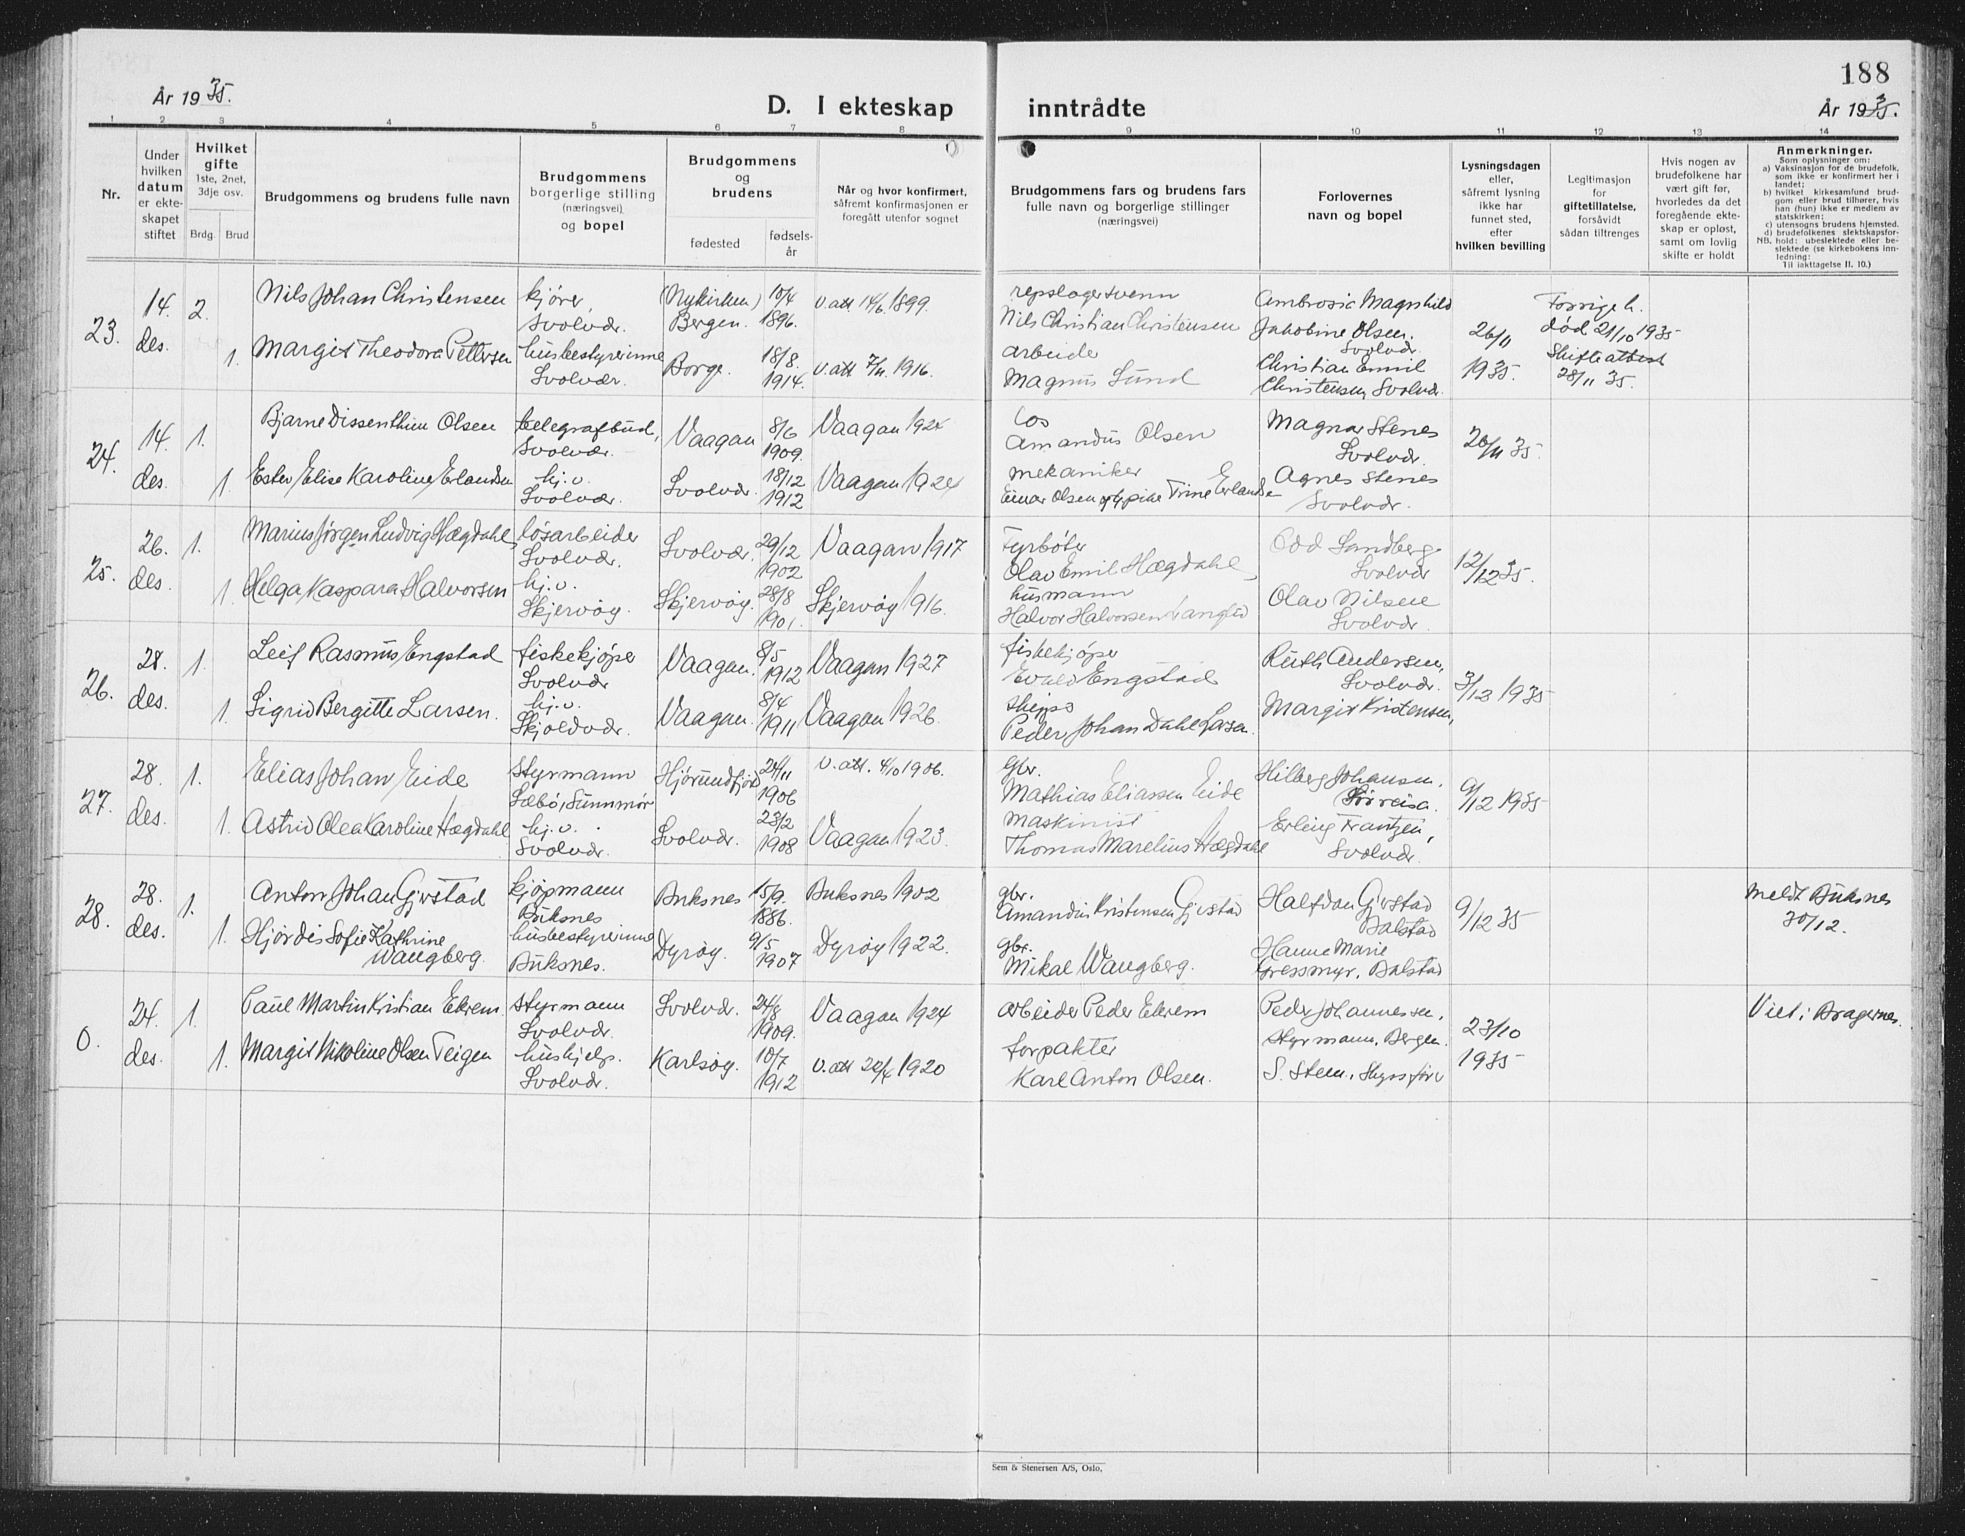 188
År 1935.
År 1935.
D. I ekteskap inntrådte
1 2 3 4 5 6 7 8 9 10 11 12 13 14
Nr.
Under hvilken datum er ekteskapet stiftet
Hvilket gifte
1ste, 2net, 3dje osv.
Brdg. Brud
Brudgommens og brudens fulle navn
Brudgommens borgerlige stilling (næringsvei) og bopel
Brudgommens og brudens
fødested
fødselsår
Når og hvor konfirmert, såfremt konfirmasjonen er foregått utenfor sognet
Brudgommens fars og brudens fars fulle navn og borgerlige stillinger (næringsvei)
Forlovernes navn og bopel
Lysningsdagen eller, såfremt lysning ikke har funnet sted, efter hvilken bevilling
Legitimasjon for giftetillatelse, forsåvidt sådan tiltrenges
Hvis nogen av brudefolkene har vært gift før, hvorledes da det foregående ekteskap er opløst, samt om lovlig skifte er holdt
Anmerkninger.
Som oplysninger om:
a) Vaksinasjon for de brudefolk, som ikke er konfirmert her i landet;
b) hvilket kirkesamfund brudgom eller brud tilhører, hvis han (hun) ikke er medlem av statskirken;
c) utensogns brudens hjemsted.
d) brudefolkenes slektskapsforhold: ubeslektede eller beslektede (se kirkebokens innledning:
NB.
Til iakttagelse II. 10.)
23. 14. des. 2. Nils Johan Christensen kjører, Svolvær. (Nykirken) Bergen. 10/4 1896. v. att 14/6 1899. repslagersvenn Nils Christian Christensen Ambrosia Magnhild Jakobine Olsen. Svolvær. 26/11 1935. Forrige h. død 21/10 1935 Skifteattest 28/11 35.
1. Margit Theodora Pettersen husbestyrerinne Svolvær. Borge. 18/8. 1914. v. att 1916. arbeider Magnus Lund Christian Emil Christensen, Svolvær.
24. 14. des. 1. Bjarne Dissenthun Olsen telegrafbud, Svolvær. Vaagan 8/6 1909. Vaagan 1924 los Amandus Olsen Magnar Stenes Svolvær. 35.
1. Ester Elise Karoline Erlandsen hj.v. Svolvær. Svolvær. 18/12 1912 Vaagan 1924 mekaniker Einar Olsen og pike Trine Erlandsen Agnes Stenes Svolvær.
25. 26. des. 1. Marius Jørgen Ludvig Hægdahl, løsarbeider Svolvær. Svolvær. 29/12 1902 Vaagan 1917 Fyrbøter Olav Emil Hægdahl, Odd Sandberg Svolvær 12/12 35.
1. Helga Kaspara Halvorsen hj.v. Skjervøy. Skjervøy. 28/8 1901. Skjervøy 1916. husmann Halvor Halvorsen Olav Nilsen Svolvær.
26. 28. des. 1. Leif Rasmus Engstad fiskekjøper Svolvær Vaagan. 8/5 1912 Vaagan 1927 fiskekjøper Evald Engstad Ruth Andersen, Svolvær. 3/12 1935
1. Sigrid Bergitte Larsen. hj.v. Skjoldvær. Vaagan. 8/4 1911 Vaagan 1926. Peder Johan Dahl Larsen. Margit Kristensen,
27. 28. des. 1. Elias Johan Eide Styrmann Sæbø, Sunnmør Hjørundfjord 24/11 1906 v. att. 4/10 1906. gbr. Mathias Eliassen Eide Hilberg Johansen. Sørreisa. 9/12 1935
1. Astrid Olea Karoline Hægdahl hj.v. Svolvær. Svolvær. 23/2 1908 Vaagan 1923. Maskinist Thomas Marelius Hægdahl Erling Frantzen, Svolvær.
28. 28. des. 1. Anton Johan Gjerstad kjøpmann Buksnes Buksnes 15/9. 1886. Buksnes 1902 gbr. Amandus Kristensen Gjerstad Halfdan Gjerstad Balstad 9/12 35 Meldt Buksnes 30/12.
1. Hjørdis Sofie Kathrine Wangberg. husbestyrerinne Buksnes. Dyrøy. 9/5 1907 Dyrøy 1922. gbr. Mikal Wangberg. Hanna Marie Gressmyr, Balstad
0. 24. des. 1. Paul Martin Kristian Ekrem. styrmann Svolvær. Svolvær. 24/8 1909. Vaagan 1924 arbeider Peder Ekrem Peder Johannessen, Styrmann, Bergen. 23/10 1935 Viet i Bragernes.
1. Margit Nikoline Olsen Teigen hushjelp. Svolvær. Karlsøy. 10/7 1912 v. att 1920 forpakter Karl Anton Olsen. S. Steen,
Sem & Stenersen A/S, Oslo.